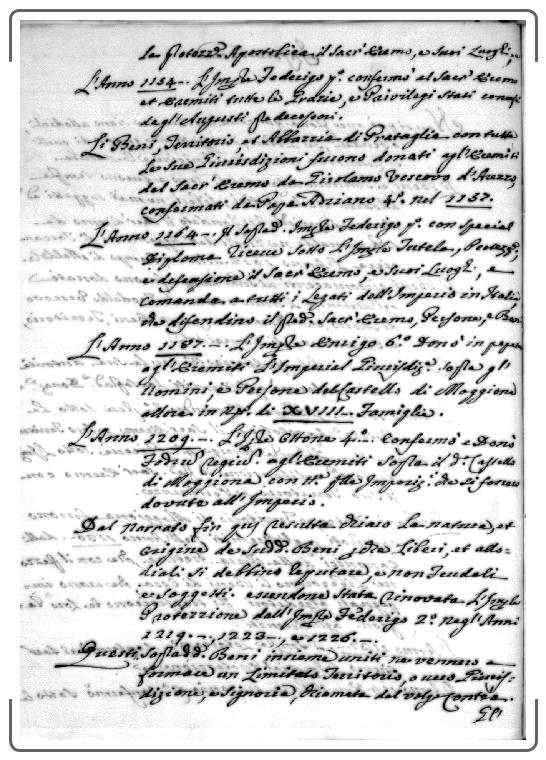 la Protez.e Apostolica il Sacr' Eremo, e Suoi Luoghi.
L'Anno 1154 - L'Imp.le Federigo p.o confermò al Sacr' Eremo
et Eremiti tutte le Grazie, e Privilegi stati concessi
dagl'Augusti Predecessori.
Li Beni, Territorio et Abbazzia di Prataglia con tutte
le Sue Giurisdizioni furono donati agl'Eremiti
del Sacr' Eremo da Girolamo Vescovo d'Arezzo,
confermati da Papa Adriano 4.o nel 1157.
L'Anno 1164 - Il Soprad. Imp.le Federigo p.o con special
Diploma riceve sotto l'Imp.le Tutela, Protezz.e,
e difensione il Sacr' Eremo, e Suoi Luoghi, e
comanda a tutti i Legati dell'Imperio in Italia,
che difendino il pred. Sacr' Eremo, Persone, e Beni
L'Anno 1187 - L'Imp.le Enrigo 6.o Donò in perpetuo
agl'Eremiti l'Imperial Giurisdiz. sopra gl'
Uomini, e Persone del Castello di Moggiona
allora in N.o di XVIII Famiglie.
L'Anno 1209 - L'Imp.le Ottone 4.o Confermò e Donò
agl'Eremiti Sopra il d.o Castello
di Moggiona con tt.e le Imposiz. che si fossero
dovute all'Imperio.
Dal Narrato fin qui resulta chiaro la natura, et
origine de Sudd. Beni che Liberi, et allo-
diali si debbino reputare, e non Feudali
e Soggetti. essendone stata rinovata l'Imp.le
Protezzione dall'Imp.le Federigo 2.o negl'Anni
1219 -, 1223 -, e 1226 -
Questi Soprad. Beni insieme uniti ne vennero a
formare un Limitato Territorio, o vero Giuris-
dizione, e Signoria, chiamata dal volg. Contea.
Gl'